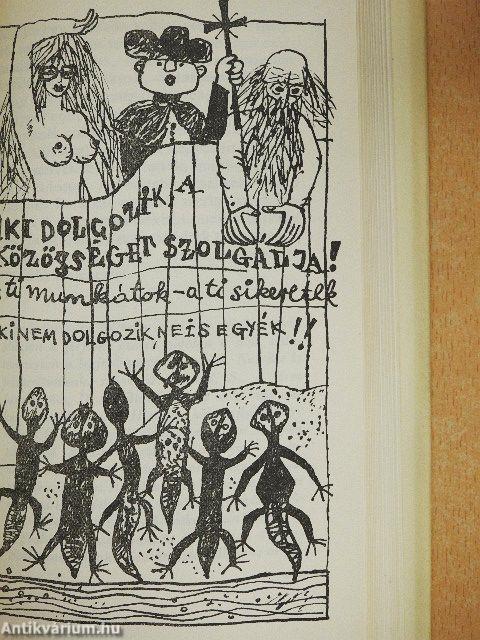 KI DOLGOZIK, A
KÖZÖSSÉGET SZOLGÁLJA!
ti munkátok – a ti sikeretek
KI NEM DOLGOZIK, NE IS EGYÉK!!
Antikvárium.hu